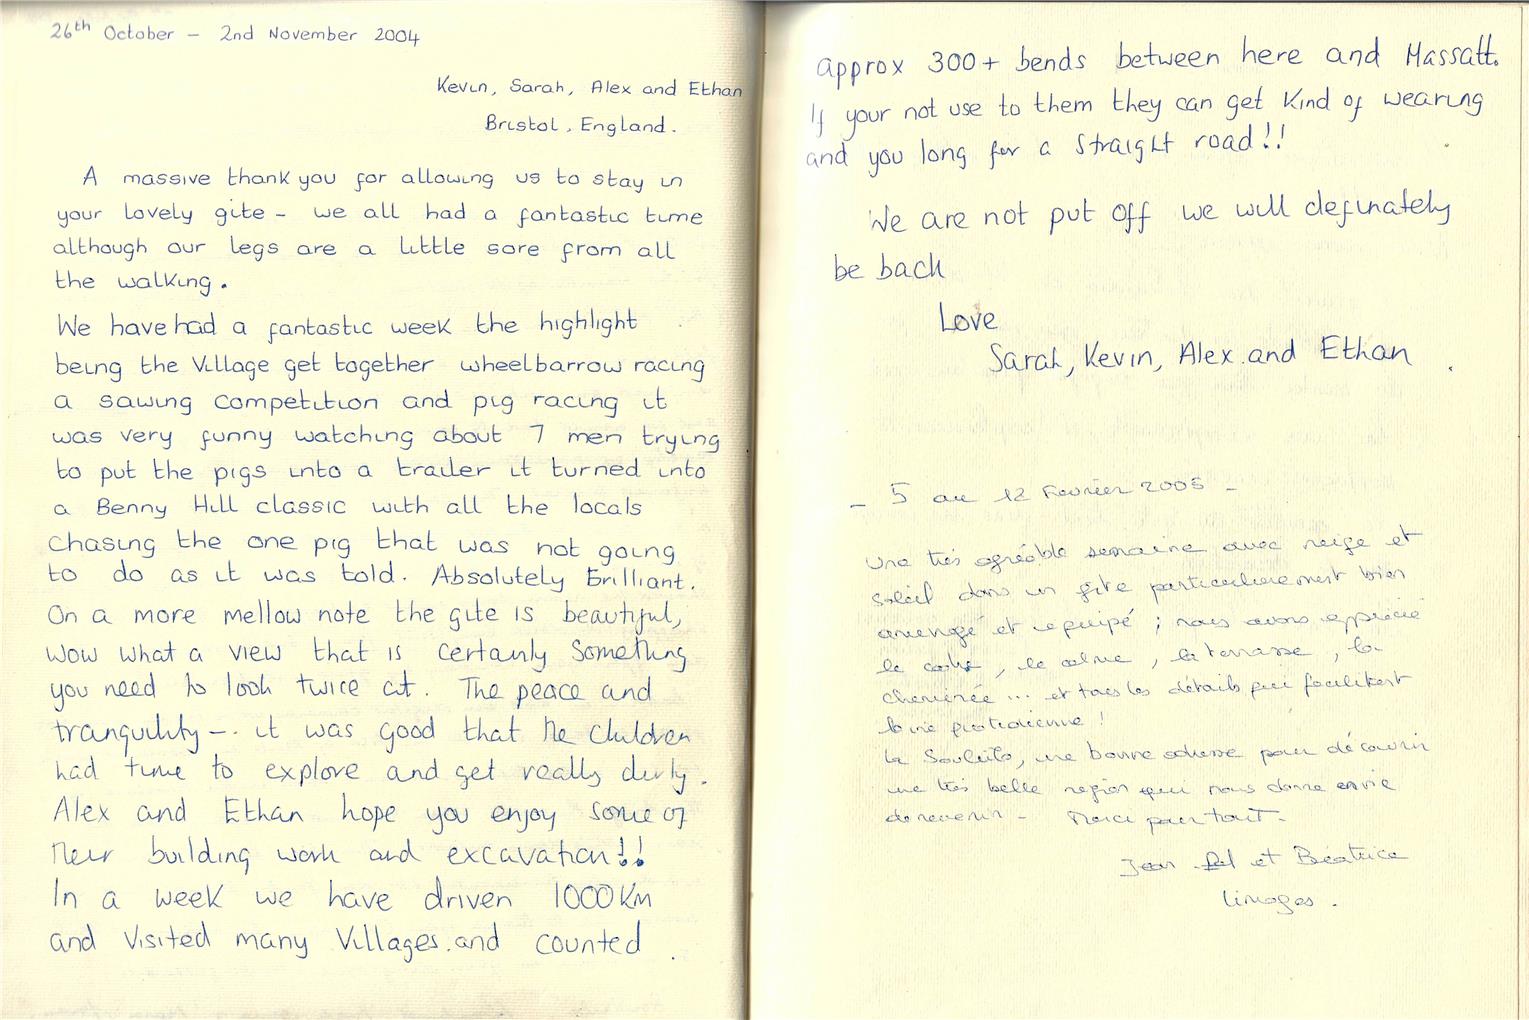 26th October - 2nd November 2004
Kevin, Sarah, Alex and Ethan
Bristol, England.
A massive thank you for allowing us to stay in
your lovely gite - we all had a fantastic time
although our legs are a little sore from all
the walking.
We have had a fantastic week the highlight
being the Village get together wheelbarrow racing
a sawing competition and pig racing it
was very funny watching about 7 men trying
to put the pigs into a trailer it turned into
a Benny Hill classic with all the locals
chasing the one pig that was not going
to do as it was told. Absolutely Brilliant.
On a more mellow note the gite is beautiful,
wow what a view that is certainly something
you need to look twice at. The peace and
tranquility - it was good that the children
had time to explore and get really dirty.
Alex and Ethan hope you enjoy some of
their building work and excavation!!
In a week we have driven 1000Km
and visited many Villages.and counted
approx 300+ bends between here and Massatt.
If your not use to them they can get kind of wearing
and you long for a straight road!!
We are not put off we will definately
be back
Love
Sarah, Kevin, Alex.and Ethan
- 5 au 12 Fevrier 2005 -
Une très agréable semaine avec neige et
soleil dans un gîte particulièrement bien
aménagé et equipé ; nous avons apprécié
le cadre, le calme, la terrasse, la
cheminée... et tous les détails qui facilitent
la vie quotidienne !
La Souleito, une bonne adresse pour découvrir
une très belle region qui nous donne envie
de revenir - Merci pour tout.
Jean et Béatrice
Limoges.